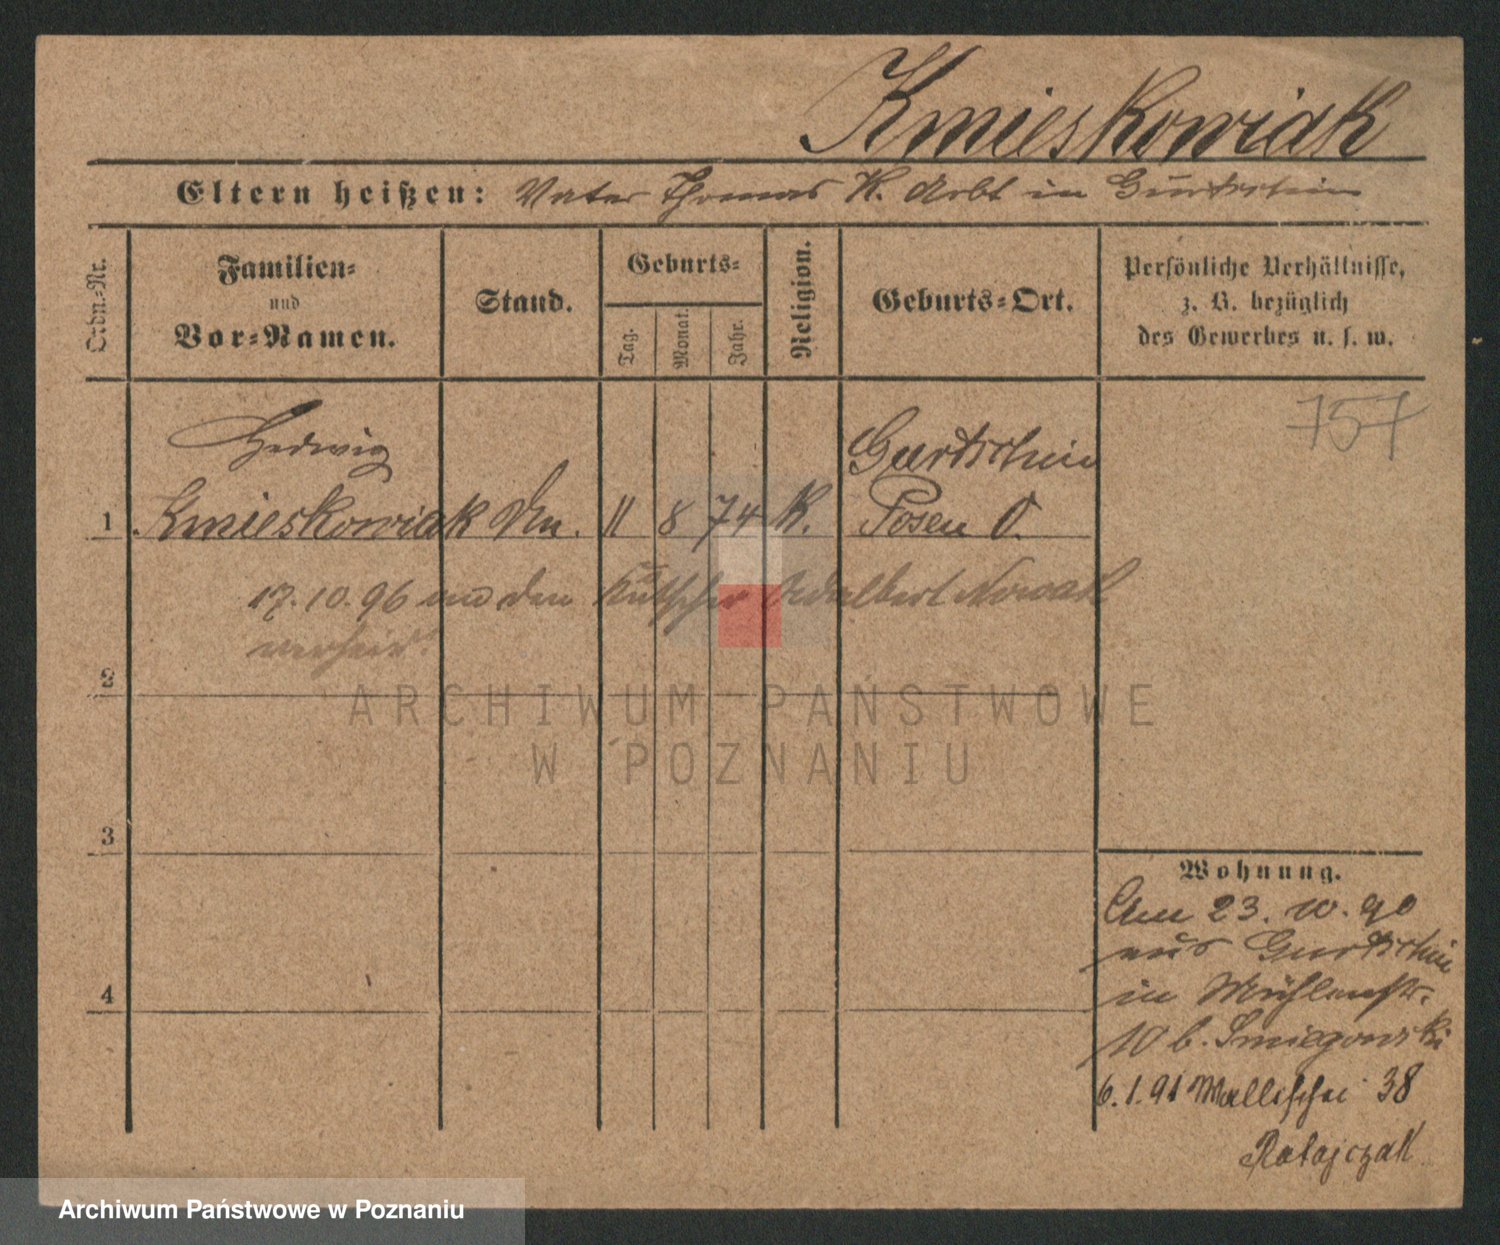 Kmieskowiak
Eltern heißen: Vater Thomas K. Arbt in Gurtschin
Ordn.-Nr.
Familien-
und
Vor-Namen.
Stand.
Geburts-
Tag.
Monat.
Jahr.
Religion.
Geburts-Ort.
Persönliche Verhältnisse,
z. B. bezüglich
des Gewerbes u. s. w.
757
Hedwig
Gurtschin
1 Kmieskowiak Dm. 11 8 74 K. Posen O.
17.10.96 den Kutscher Adalbert Nowak
verheir.
2
ARCHIWUM PAŃSTWOWE
W POZNANIU
3
Wohnung.
Am 23. 10. 90
aus Gurtschin
in Mühlenstr.
4
10 b. Smiegowski
6.1.91 Wallischei 38
Ratajczak
Archiwum Państwowe w Poznaniu